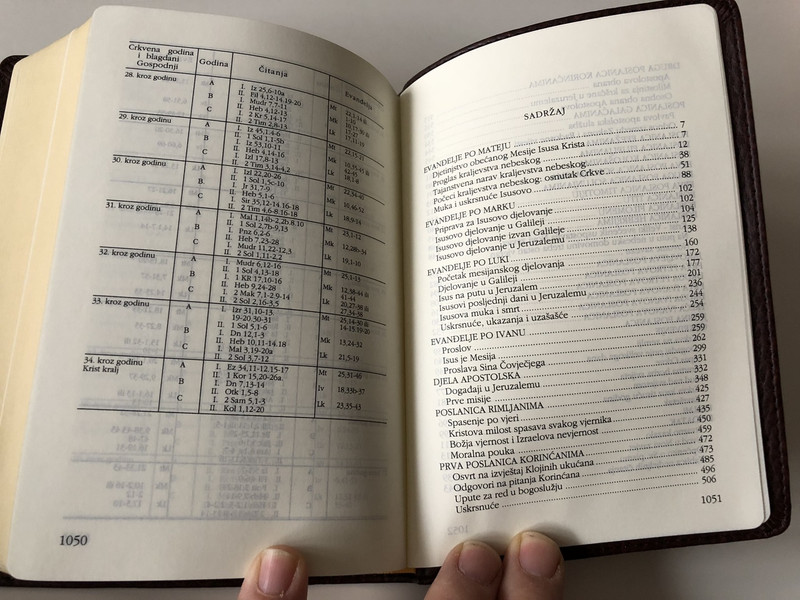 Crkvena godina
i blagdani
Gospodnji
Godina
Čitanja
Evanđelja
28. kroz godinu
A
I. Iz 25,6-10a
II. Fil 4,12-14.19-20
B
I. Mudr 7,7-11
II. Heb 4,12-13
C
I. 2 Kr 5,14-17
II. 2 Tim 2,8-13
29. kroz godinu
A
I. Iz 45,1.4-6
II. 1 Sol 1,1-5b
Mt 22,15-21
B
I. Iz 53,10-11
II. Heb 4,14-16
C
I. Izl 17,8-13
II. 2 Tim 3,14-4,2
Lk 18,1-8
30. kroz godinu
A
I. Izl 22,20-26
II. 1 Sol 1,5c-10
Mt 22,34-40
B
I. Jr 31,7-9
II. Heb 5,1-6
Mk 10,46-52
C
I. Sir 35,12-14.16-18
II. 2 Tim 4,6-8.16-18
Lk 18,9-14
31. kroz godinu
A
I. Mal 1,14b-2,2b.8.10
II. 1 Sol 2,7b-9,13
B
I. Pnz 6,2-6
II. Heb 7,23-28
Mk 12,28b-34
C
I. Mudr 11,22-12,3
II. 2 Sol 1,11-2,2
Lk 19,1-10
32. kroz godinu
A
I. Mudr 6,12-16
II. 1 Sol 4,13-18
Mt 25,1-13
B
I. 1 KR 17,10-16
II. Heb 9,24-28
Mk 12,38-44 ili
41-44
C
I. 2 Mak 7,1-2.9-14
II. 2 Sol 2,16-3,5
Lk 20,27-38 ili
27.34-38
33. kroz godinu
A
I. Izr 31,10-13.
19-20.30-31
II. 1 Sol 5,1-6
Mt 25,14-30 ili
14-15.19-20
B
I. Dn 12,1-3
II. Heb 10,11-14.18
Mk 13,24-32
C
I. Mal 3,19-20a
II. 2 Sol 3,7-12
Lk 21,5-19
34. kroz godinu
Krist kralj
A
I. Ez 34,11-12.15-17
II. 1 Kor 15,20-26a.
Mt 25,31-46
B
I. Dn 7,13-14
II. Otk 1,5-8
Iv 18,33b-37
C
I. 2 Sam 5,1-3
II. Kol 1,12-20
Lk 23,35-43
1050
SADRŽAJ
EVANĐELJE PO MATEJU 7
Djetinjstvo obećanog Mesije Isusa Krista 7
Proglas kraljevstva nebeskog 12
Tajanstvena narav kraljevstva nebeskog 38
Počeci kraljevstva nebeskog: osnutak Crkve 51
Muka i uskrsnuće Isusovo 88
EVANĐELJE PO MARKU 102
Priprava za Isusovo djelovanje 102
Isusovo djelovanje u Galileji 104
Isusovo djelovanje izvan Galileje 125
Isusovo djelovanje u Jeruzalemu 138
EVANĐELJE PO LUKI 160
Početak mesijanskog djelovanja 172
Djelovanje u Galileji 177
Isus na putu u Jeruzalem 201
Isusovi posljednji dani u Jeruzalemu 236
Isusova muka i smrt 244
Uskrsnuće, ukazanja i uzašašće 254
EVANĐELJE PO IVANU 259
Proslov 259
Isus je Mesija 262
Proslava Sina Čovječjega 299
DJELA APOSTOLSKA 331
Događaji u Jeruzalemu 332
Prve misije 348
POSLANICA RIMLJANIMA 425
Spasenje po vjeri 427
Kristova milost spasava svakog vjernika 435
Božja vjernost i Izraelova nevjernost 450
Moralna pouka 459
PRVA POSLANICA KORINĆANIMA 472
Osvrt na izvještaj Klojinih ukućana 473
Odgovori na pitanja Korinćana 485
Upute za red u bogoslužju 496
Uskrsnuće 506
1051